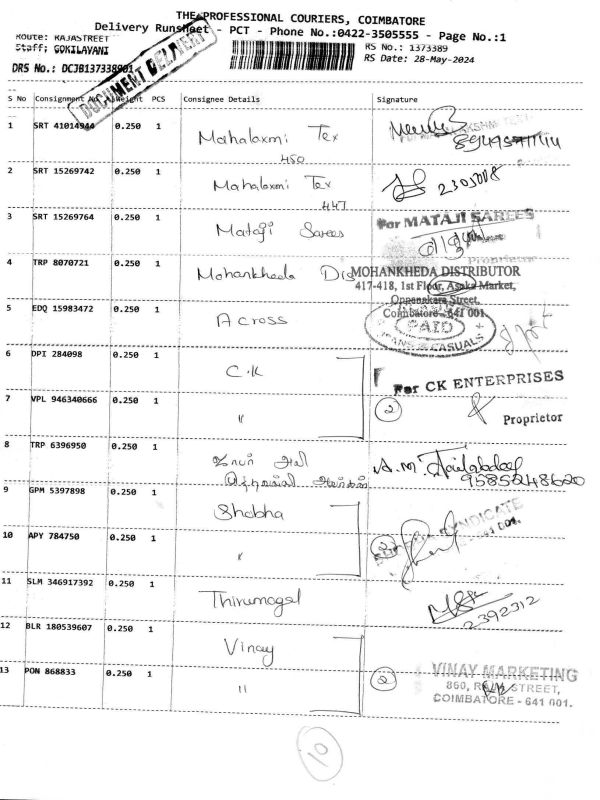 THE PROFESSIONAL COURIERS, COIMBATORE
Delivery Runsheet - PCT - Phone No.:0422-3505555 - Page No.:1
Route: RAJASTREET
RS No.: 1373389
Staff; GOKILAVANI
RS Date: 28-May-2024
DRS No.: DCJB137338901
DOCUMENT DELIVERY
S No Consignment No Weight PCS Consignee Details Signature
1 SRT 41014944 0.250 1 Mahalaxmi Tex
450
2 SRT 15269742 0.250 1 Mahalaxmi Tex 2305008
447
3 SRT 15269764 0.250 1 Mataji Sarees For MATAJI SAREES
Proprietor
4 TRP 8070721 0.250 1 Mohankheda Dis MOHANKHEDA DISTRIBUTOR
417-418, 1st Floor, Asoka Market,
Oppanakara Street,
Coimbatore - 641 001.
5 EDQ 15983472 0.250 1 Across
PAID
JEANS & CASUALS
6 DPI 284098 0.250 1 C.K For CK ENTERPRISES
7 VPL 946340666 0.250 1 " 2
Proprietor
8 TRP 6396950 0.250 1 A.M.
9585248620
9 GPM 5397898 0.250 1 Shobha SYNDICATE
10 APY 784750 0.250 1 " 2
11 SLM 346917392 0.250 1 Thirumagal
2392312
12 BLR 180539607 0.250 1 Vinay
13 PON 868833 0.250 1 " 2 VINAY MARKETING
860, RAJA STREET,
COIMBATORE - 641 001.
10